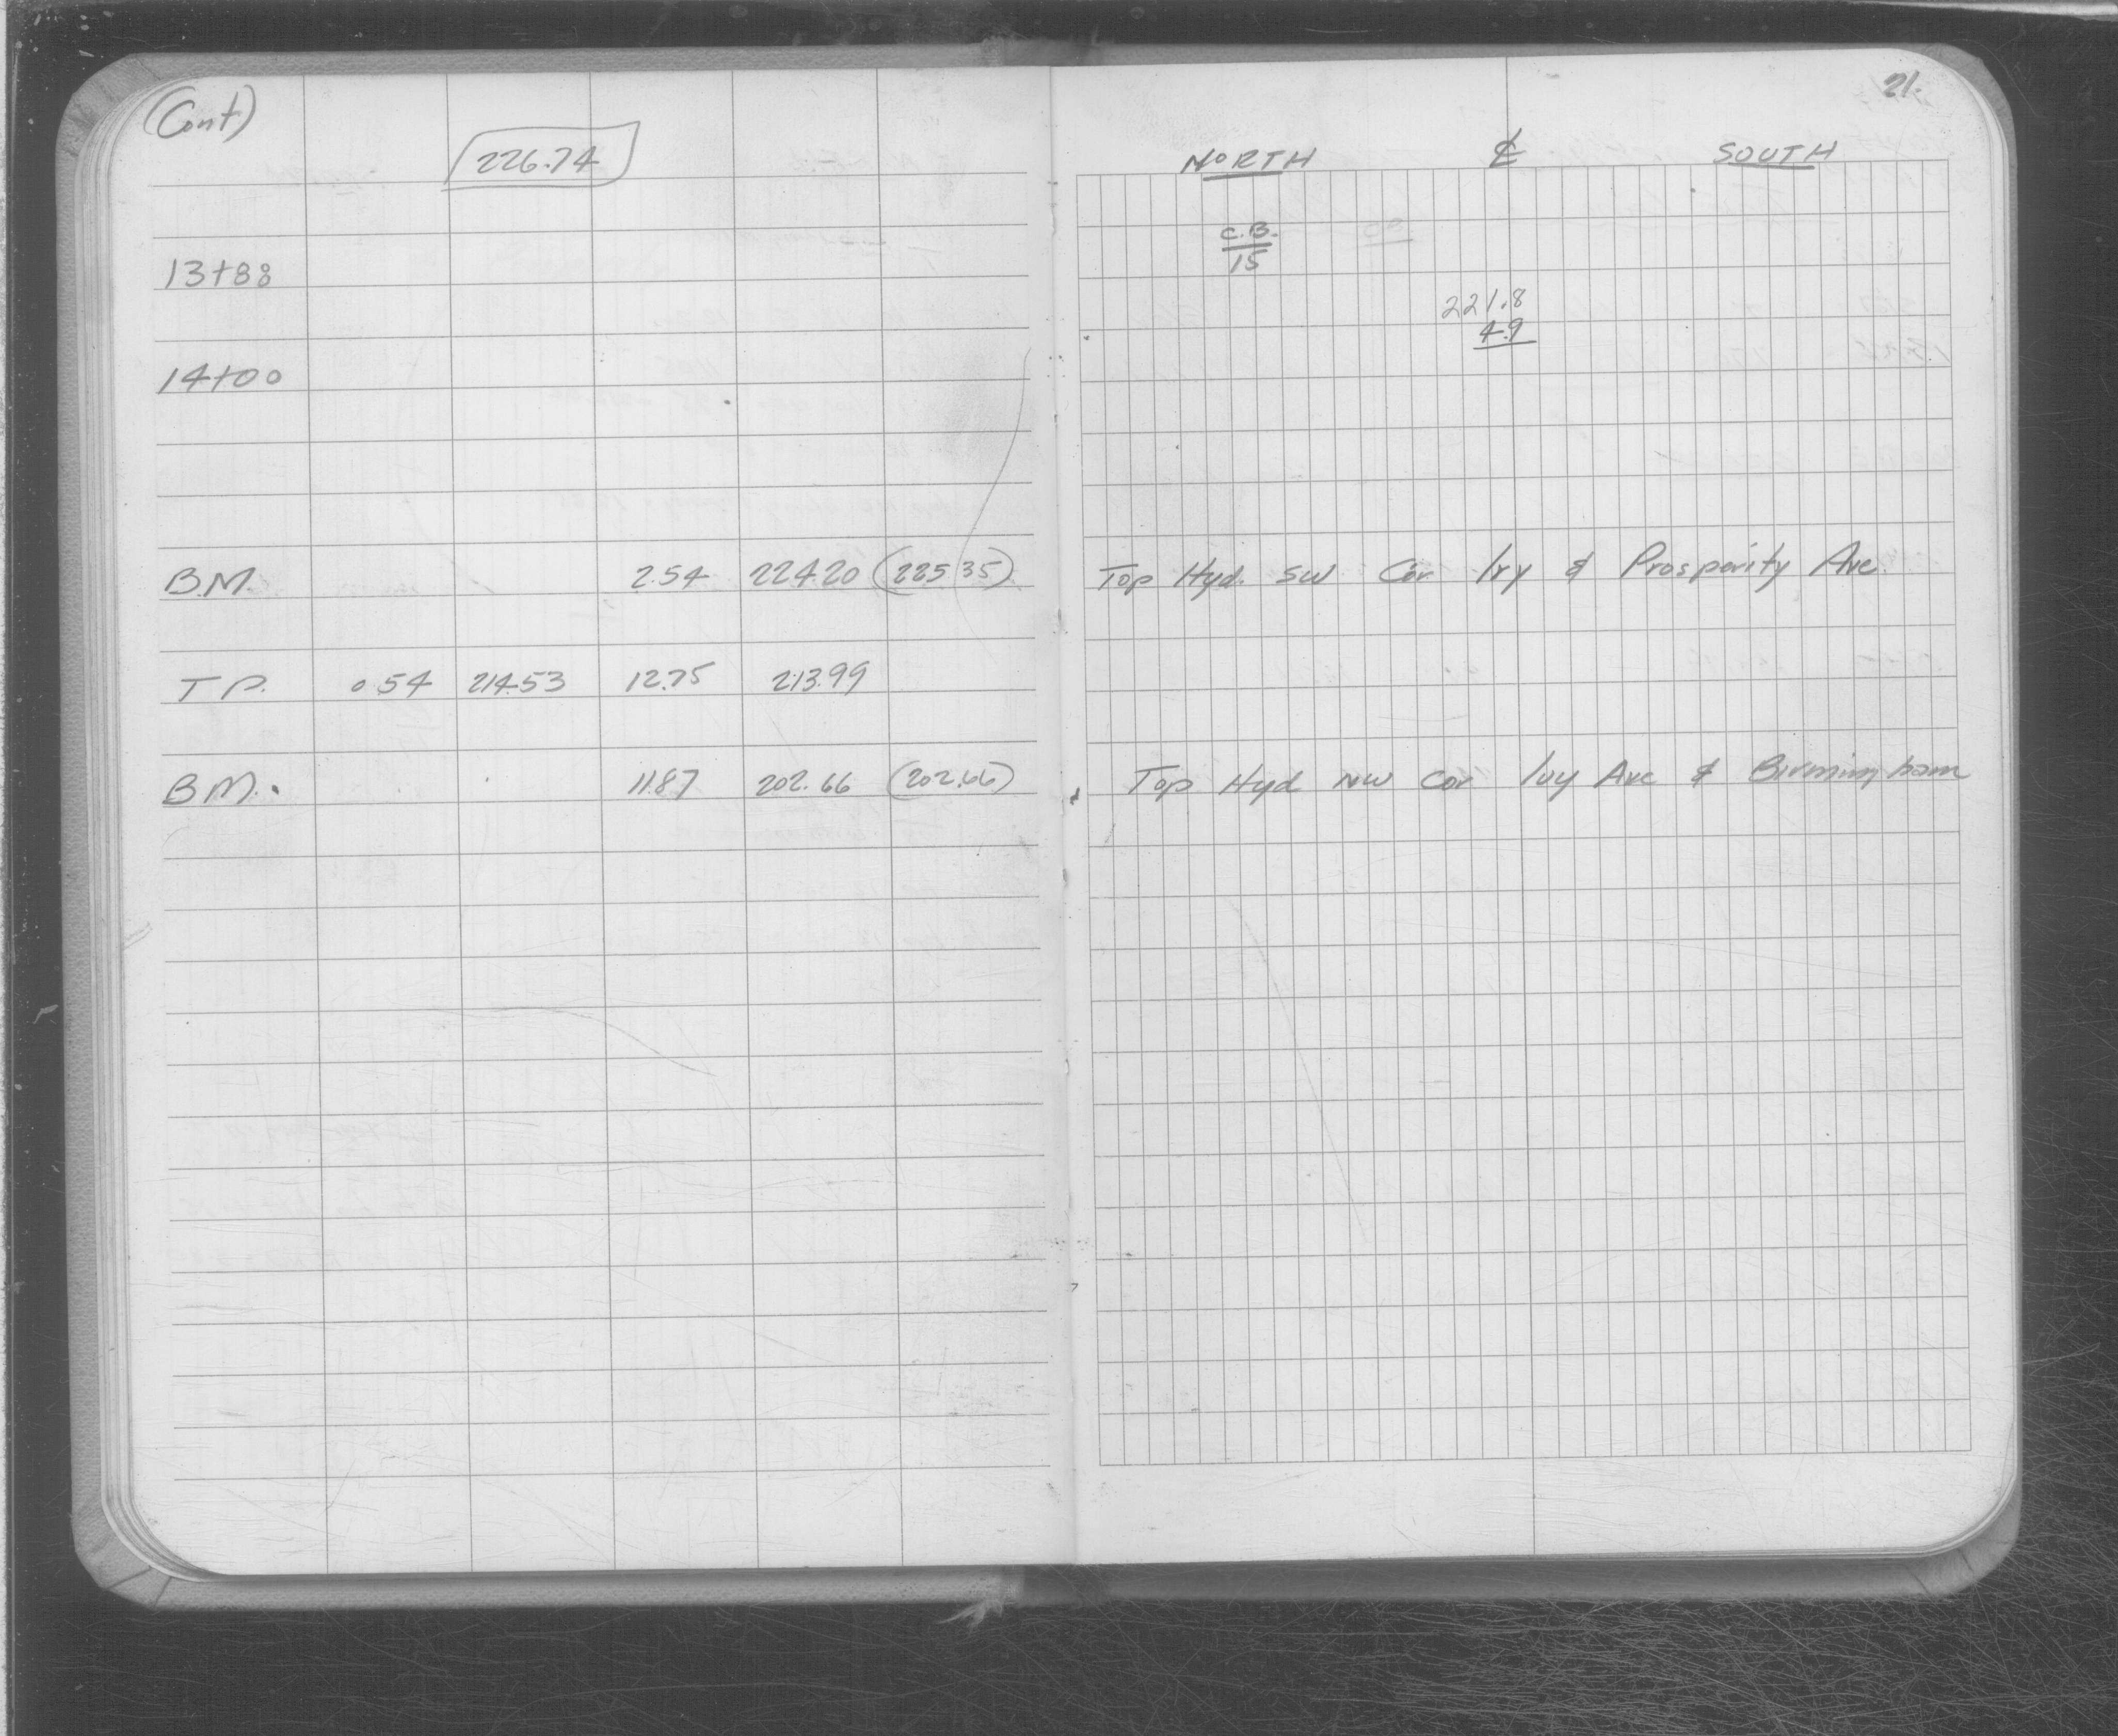 (Cont)
226.74
13+88
14+00
B.M. 2.54 224.20 (225.35)
T.P. 0.54 214.53 12.75 213.99
B.M. 11.87 202.66 (202.66)
21.
NORTH ℄ SOUTH
C.B.
15
221.8
4.9
Top Hyd. SW Cor Ivy & Prosperity Ave.
Top Hyd NW Cor Ivy Ave & Birmingham